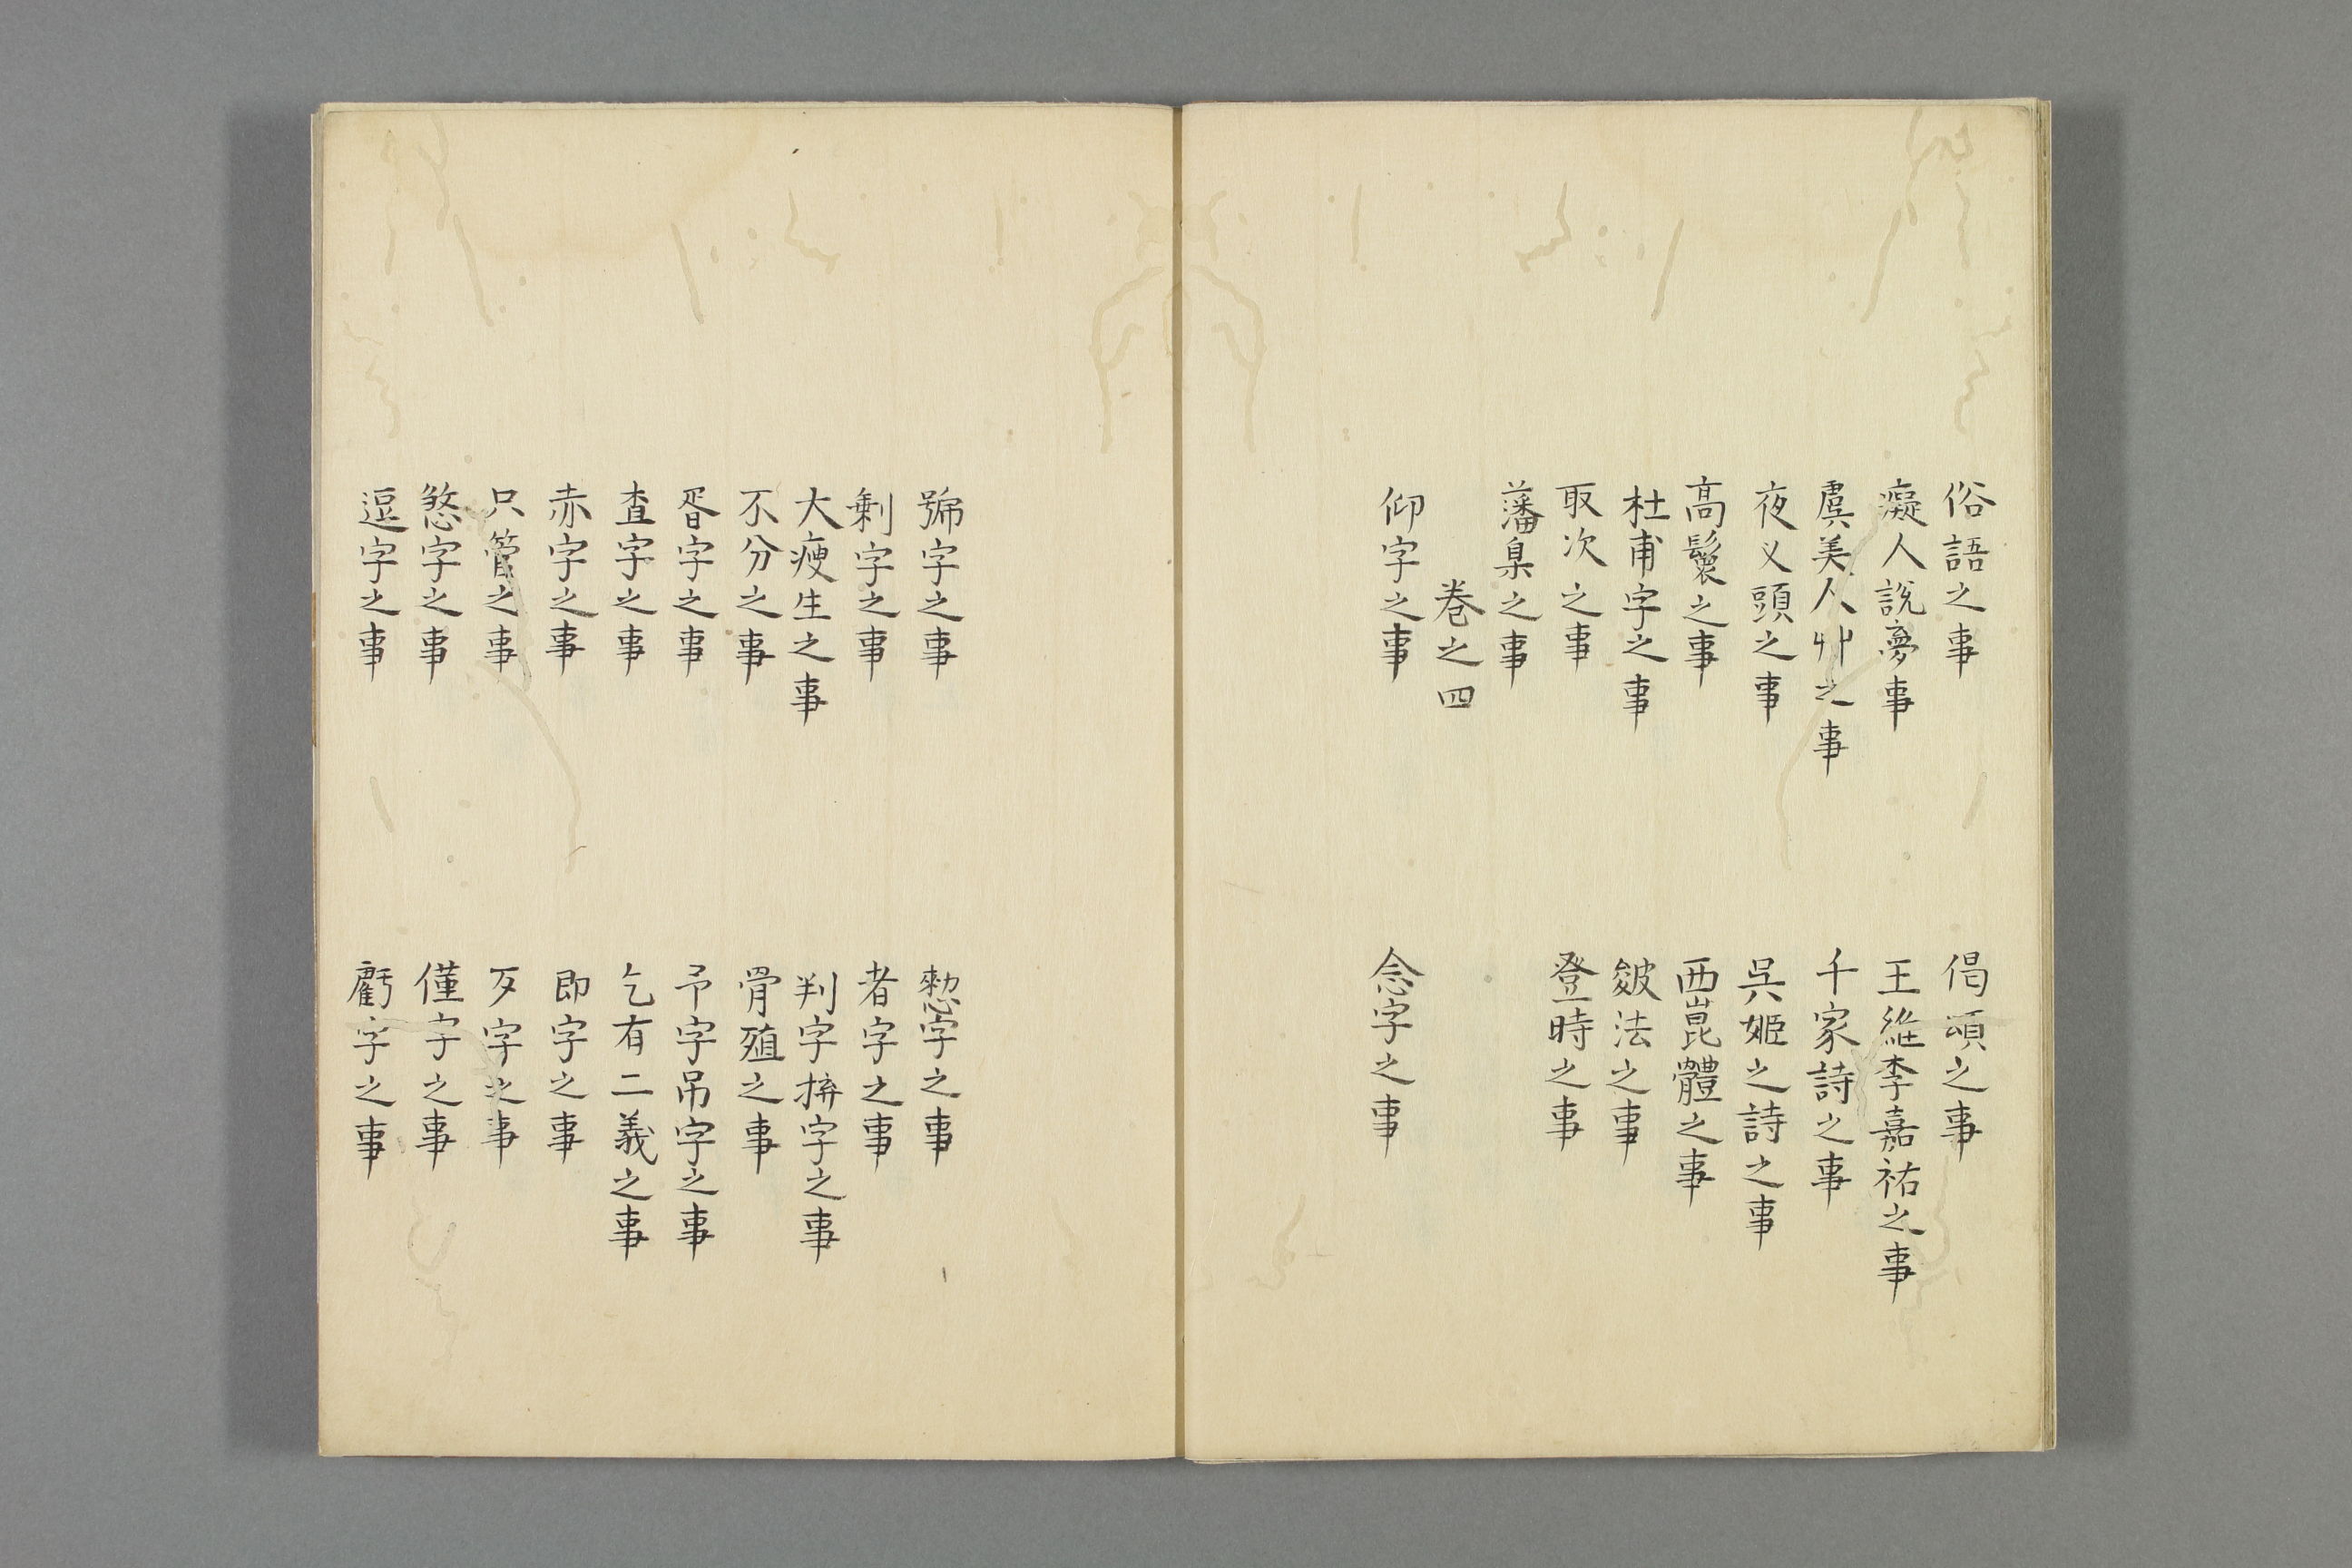 俗語之事
偈頌之事
癡人說夢事
王維李嘉祐之事
虞美人艸之事
千家詩之事
夜义頭之事
吳姬之詩之事
高鬟之事
西崑體之事
杜甫字之事
皴法之事
取次之事
登時之事
藩臬之事
卷之四
仰字之事
念字之事
號字之事
懃字之事
剩字之事
者字之事
大瘦生之事
判字拚字之事
不分之事
骨殖之事
胥字之事
予字吊字之事
查字之事
乞有二義之事
赤字之事
即字之事
只管之事
歹字之事
煞字之事
僅字之事
逗字之事
虧字之事